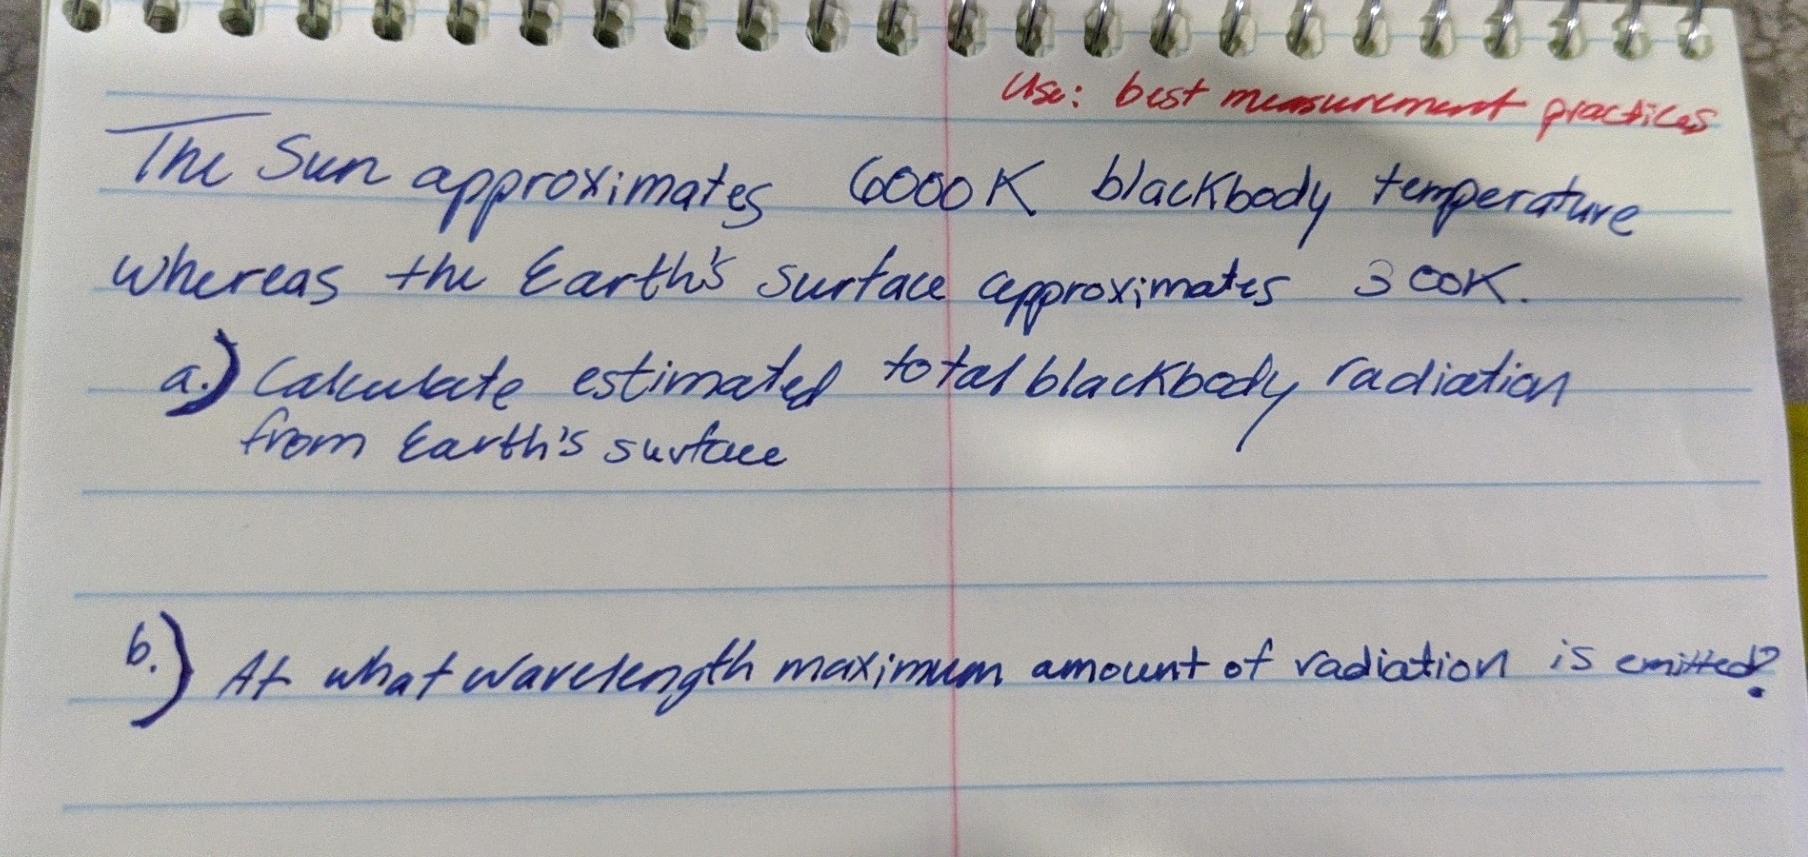 Use: best measurement practices
The Sun approximates 6000K blackbody temperature
whereas the Earth's surface approximates 300K.
a.) Calculate estimated total blackbody radiation
from Earth's surface
b.) At what wavelength maximum amount of radiation is emitted?